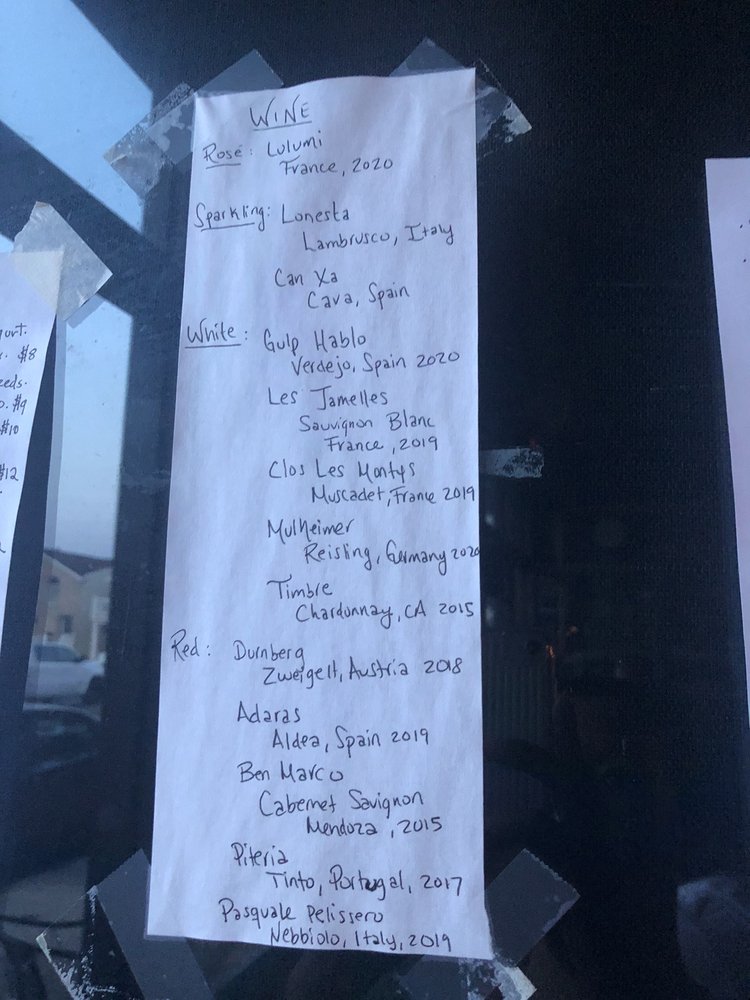 WINE
Rosé: Lulumi
France, 2020
Sparkling: Lonesta
Lambrusco, Italy
Can Xa
Cava, Spain
White: Gulp Hablo
Verdejo, Spain 2020
Les Jamelles
Sauvignon Blanc
France, 2019
Clos Les Montys
Muscadet, France 2019
Mulheimer
Reisling, Germany 2020
Timbre
Chardonnay, CA 2015
Red: Durnberg
Zweigelt, Austria 2018
Adaras
Aldea, Spain 2019
Ben Marco
Cabernet Savignon
Mendoza, 2015
Piteria
Tinto, Portugal, 2017
Pasquale Pelissero
Nebbiolo, Italy, 2019
$8
$9
$10
$12